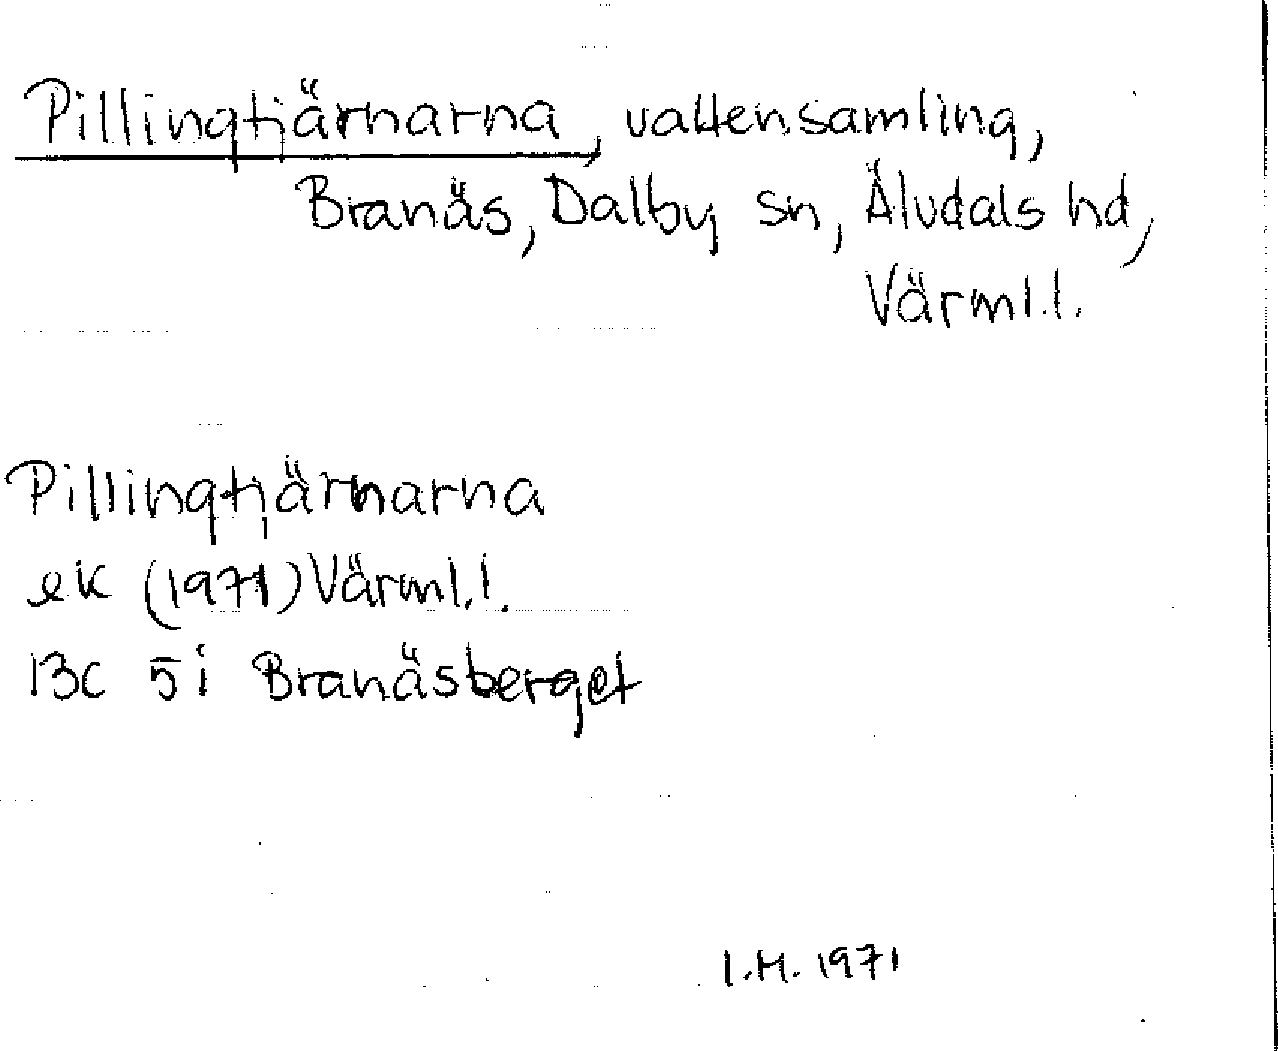 Pillingtjärnarna, vattensamling,
Branäs, Dalby sn, Älvdals hd,
Värml.l.
Pillingtjärnarna
ek (1971) Värml.l.
13c 5i Branäsberget
I.H. 1971